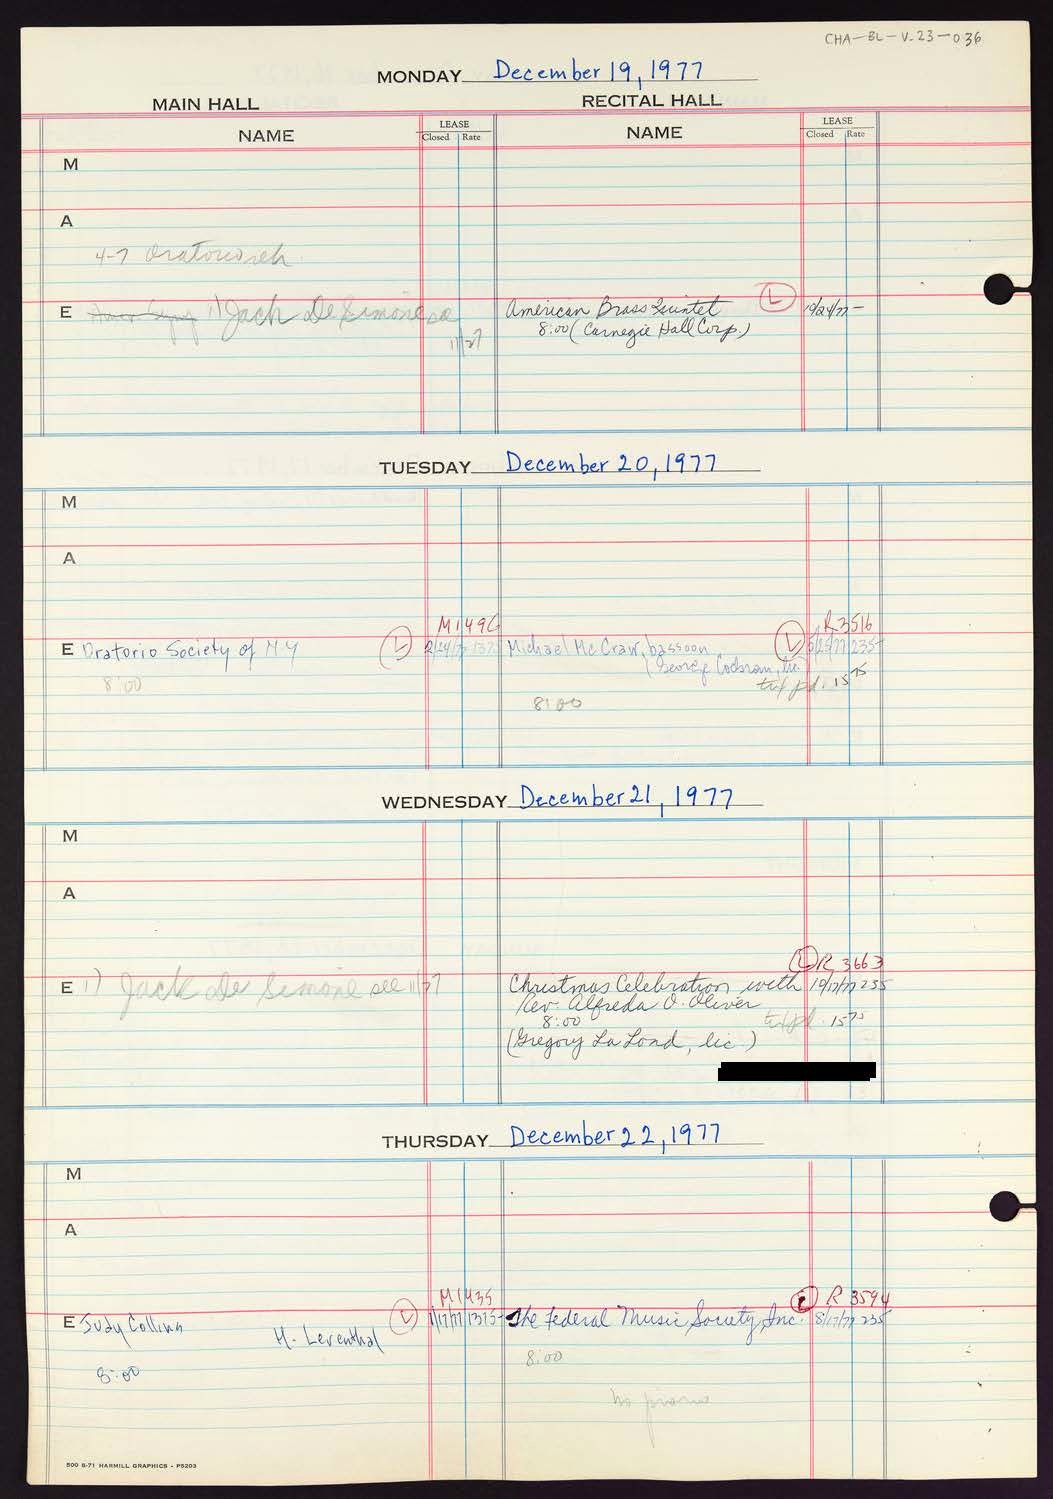 CHA-BL-V.23-036
MONDAY December 19, 1977
MAIN HALL RECITAL HALL
NAME LEASE Closed Rate NAME LEASE Closed Rate
M
A
4-7 Oratorio reh.
E 1) Jack De Simone see American Brass Quintet L 10/24/77 -
11/27 8:00 (Carnegie Hall Corp.)
TUESDAY December 20, 1977
M
A
M1496 R3516
E Oratorio Society of N Y L 2/24/77 1375 Michael McCraw, bassoon L 5/25/77 235-
(George Cochran, lic.
8:00 tix pd. 15 75
8:00
WEDNESDAY December 21, 1977
M
A
L R 3663
E 1) Jack De Simone see 11/27 Christmas Celebration with 10/17/77 235
Rev. Alfreda O. Oliver
8:00 tix pd. 15 75
(Gregory La Lond, lic.)
THURSDAY December 22, 1977
M
A
M1435 L R 3594
E Judy Collins L 1/17/77 1375- The Federal Music Society, Inc. 8/17/77 235
H. Leventhal
8:00 8:00
no piano
500 8-71 HARMILL GRAPHICS - P5203